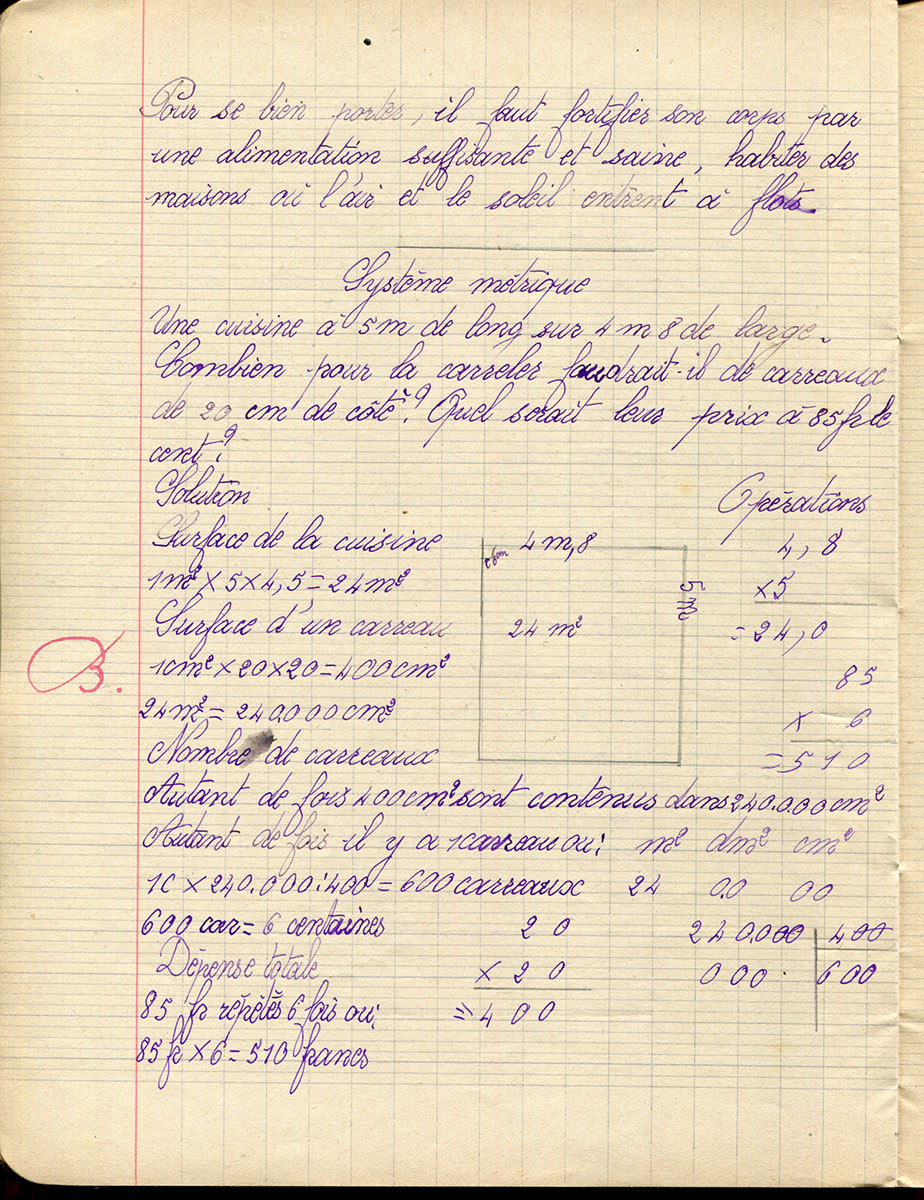 Pour se bien portes, il faut fortifier son corps par
une alimentation suffisante et saine, habiter des
maisons où l'air et le soleil entrent à flots
Système métrique
Une cuisine à 5m de long sur 4 m 8 de large.
Combien pour la carreler faudrait-il de carreaux
de 20 cm de côté? Quel serait leur prix à 85 fr le
cent?
Solution
Opérations
Surface de la cuisine
1m² × 5 × 4,5 = 24m²
Surface d'un carreau
1cm² × 20 × 20 = 400cm²
24m² = 240.000cm²
Nombre de carreaux
4m,8
5m
24 m²
4,8
×5
=24,0
85
× 6
=510
B.
Autant de fois 400cm² sont contenus dans 240.000cm²
Autant de fois il y a 1 carreau ou:
1C × 240.000:400 = 600 carreaux
600 car = 6 centaines
Dépense totale
85 fr répétés 6 fois ou:
85 fr × 6 = 510 francs
m² dm² cm²
24 00 00
20
× 20
= 400
240.000 400
000 600